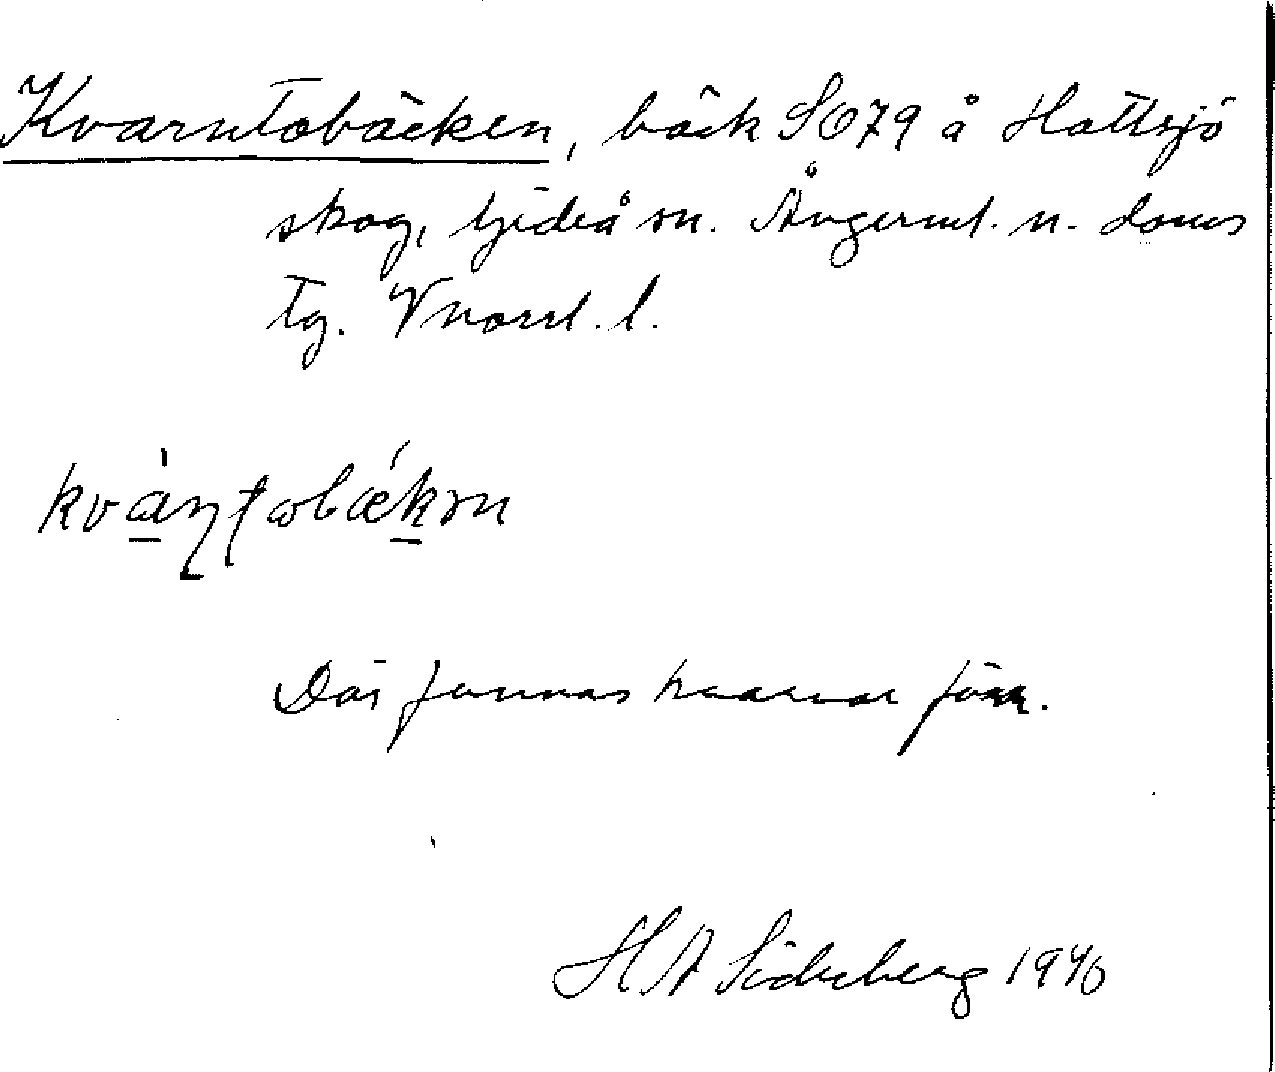 Kvarntobäcken, bäck SO79 å Hattsjö
skog, Gideå sn. Ångerml. n. doms
tg. Vnorrl. l.
kvàṇṭωbǽkən
Där funnos kvarnar förr.
H A Söderberg 1940